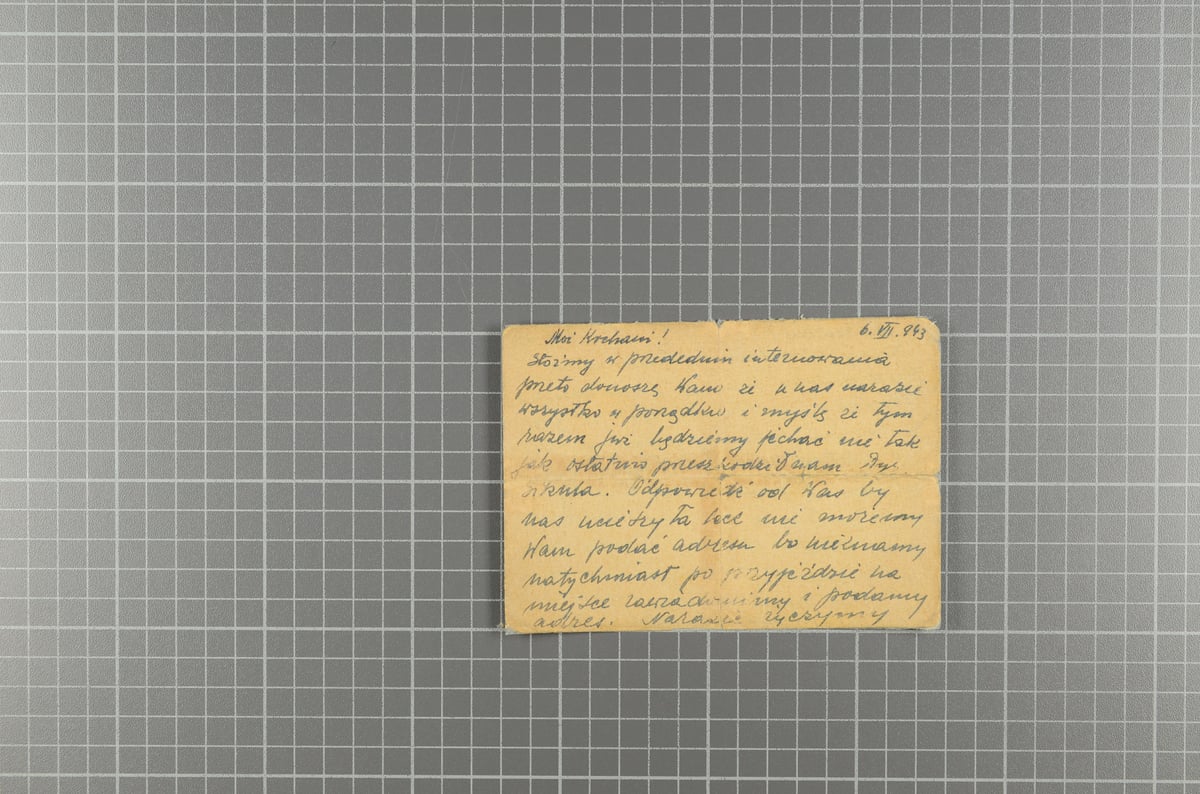 6. VII. 943
Moi Kochani!
Stoimy w przededniu internowania
przeto donoszę Wam że u nas narazie
wszystko w porządku i myślę że tym
razem już będziemy jechać nie tak
jak ostatnio przeszkodził nam
Odpowiedź od Was by
nas ucieszyła lecz nie możemy
Wam podać adresu bo nieznamy
natychmiast po przyjeździe na
miejsce zawiadomimy i podamy
adres. Narazie życzymy